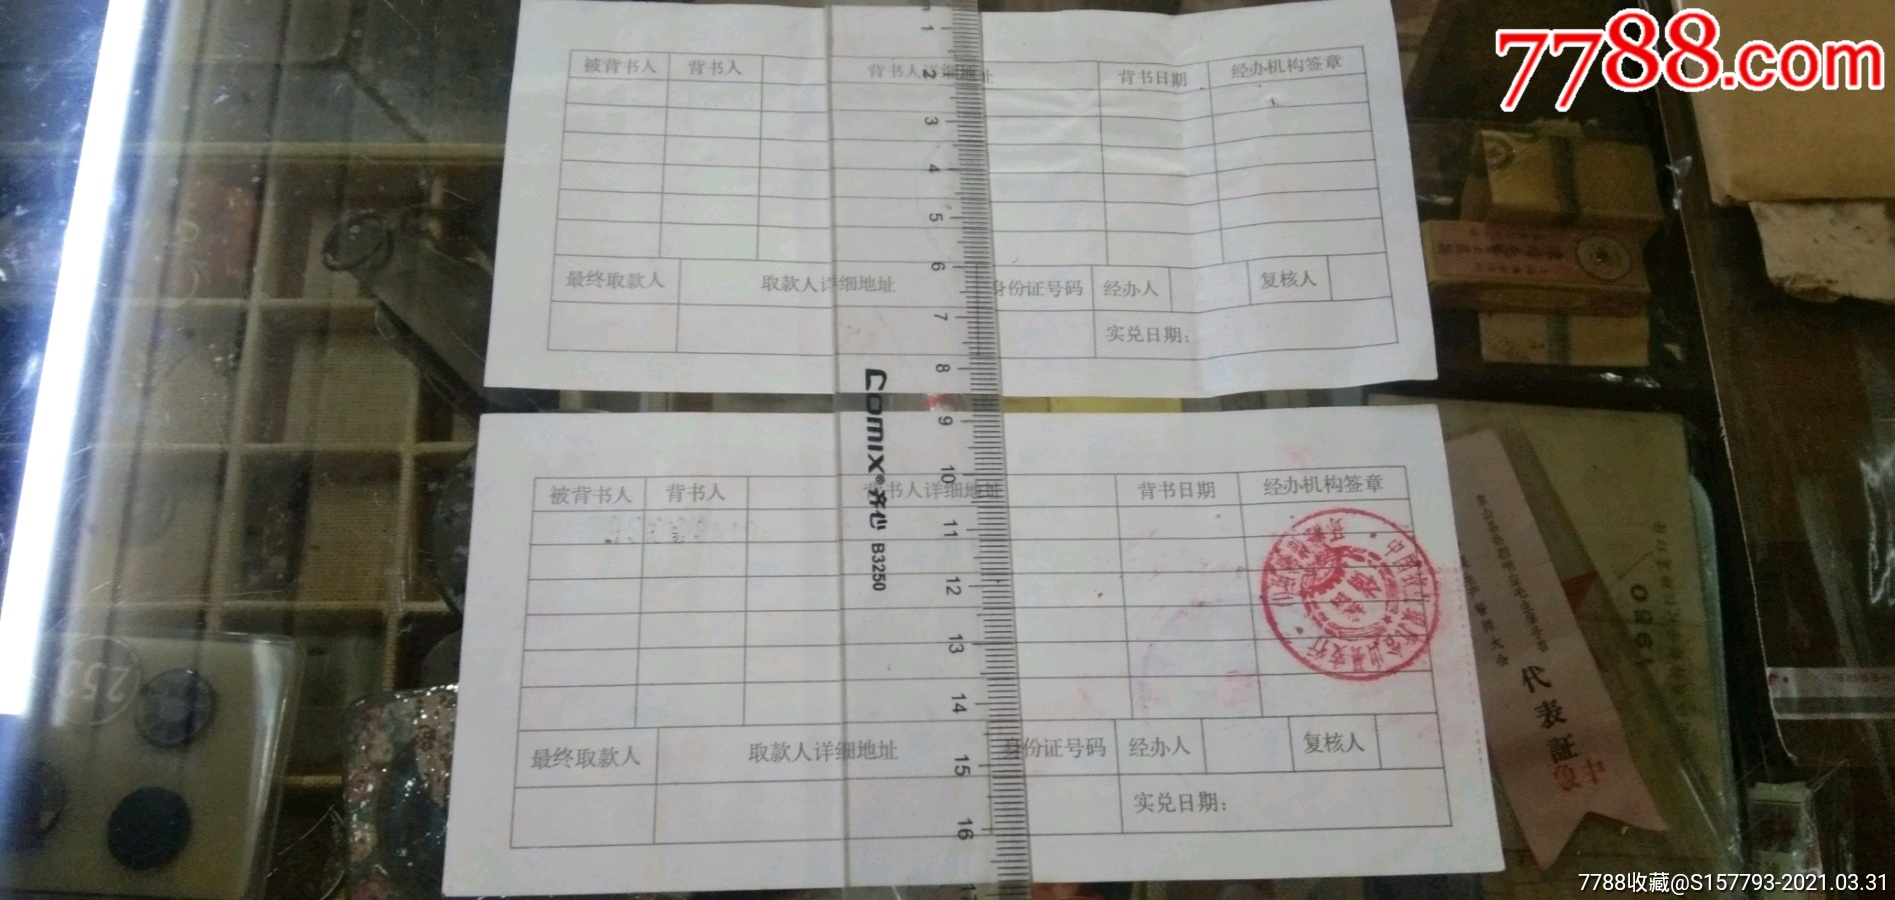 7788.com
被背书人 背书人 背书人详细地址 背书日期 经办机构签章
最终取款人 取款人详细地址 身份证号码 经办人 复核人
实兑日期：
1
2
3
4
5
6
7
8
9
10
11
12
13
14
15
16
comix®齐心 B3250
被背书人 背书人 背书人详细地址 背书日期 经办机构签章
最终取款人 取款人详细地址 身份证号码 经办人 复核人
实兑日期：
1950
代表証
7788收藏@S157793-2021.03.31